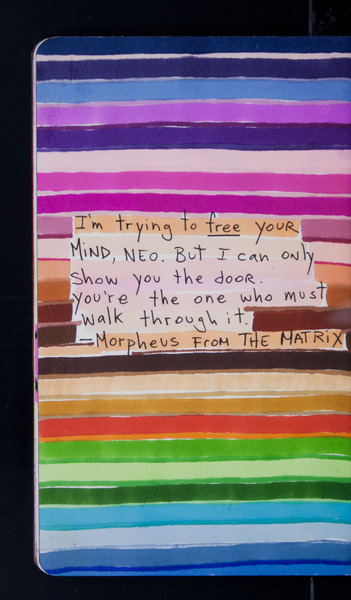 I'm trying to free your
MIND, NEO. But I can only
show you the door.
you're the one who must
walk through it.
—Morpheus FROM THE MATRIX